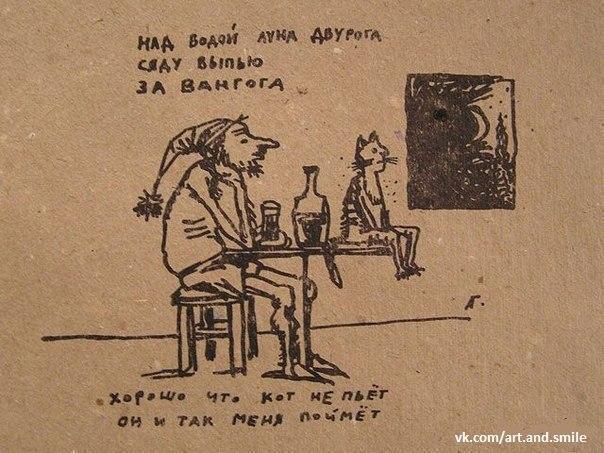 НАД ВОДОЙ ЛУНА ДВУРОГА
СЯДУ ВЫПЬЮ
ЗА ВАНГОГА
Г.
ХОРОШО ЧТО КОТ НЕ ПЬЁТ
ОН И ТАК МЕНЯ ПОЙМЁТ
vk.com/art.and.smile